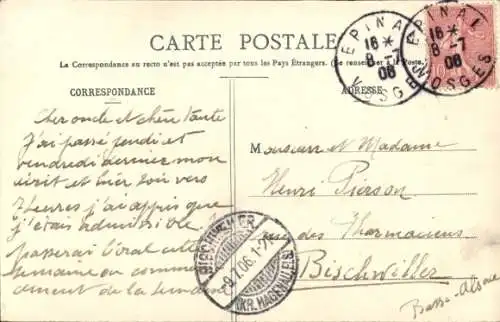 CARTE POSTALE
La Correspondance au recto n'est pas acceptée par tous les Pays Étrangers. (Se renseigner à la Poste.)
CORRESPONDANCE
ADRESSE
Cher oncle et chère tante
J'ai passé jeudi et
vendredi dernier mon
écrit et hier soir vers
7 heures j'ai appris que
j'étais admissible.
passerai l'oral cette
semaine ou commen
cement de la semaine
Monsieur et Madame
Henri Pierson
rue des Pharmaciens
Bischwiller
Basse-Alsace
EPINAL
16 *
8 -7
06
VOSGES
EPINAL
16 *
8 -7
06
VOSGES
BISCHWEILER
9.7.06.1-2
(KR. HAGENAU ELS)
10